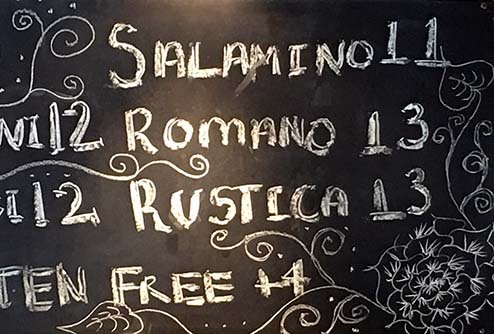 SALAMINO 11
NI 12 ROMANO 13
I 12 RUSTICA 13
TEN FREE +4